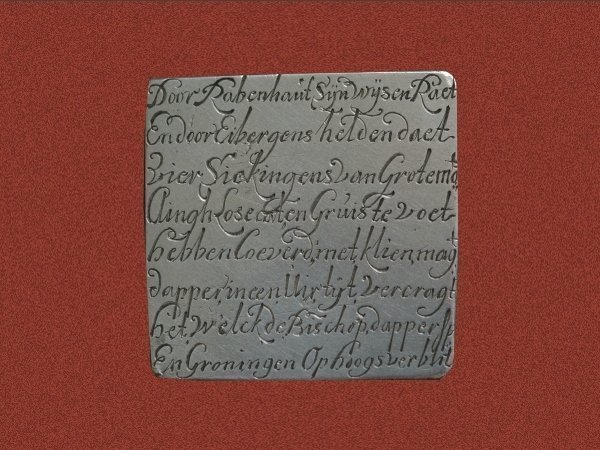 Door Rabenhaut Sijn wijsen Raet
En door Eibergens helden daet
vier Sickingens van Grote mo
Clingh Losecaten Gruis te voet
hebben Coeverd, met klien mag
dapper, in een Uhr, tijt, vercragt
het Welck de Bischop, dapper sp
En Groningen Op hoogs verblit